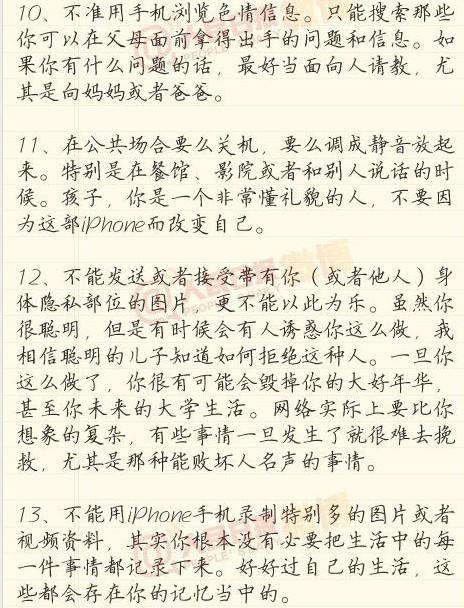 10、不准用手机浏览色情信息。只能搜索那些
你可以在父母面前拿得出手的问题和信息。如
果你有什么问题的话，最好当面向人请教，尤
其是向妈妈或者爸爸。
11、在公共场合要么关机，要么调成静音放起
来。特别是在餐馆、影院或者和别人说话的时
候。孩子，你是一个非常懂礼貌的人，不要因
为这部iPhone而改变自己。
12、不能发送或者接受带有你（或者他人）身
体隐私部位的图片，更不能以此为乐。虽然你
很聪明，但是有时候会有人诱惑你这么做，我
相信聪明的儿子知道如何拒绝这种人。一旦你
这么做了，你很有可能会毁掉你的大好年华，
甚至你未来的大学生活。网络实际上要比你
想象的复杂，有些事情一旦发生了就很难去挽
救，尤其是那种能败坏人名声的事情。
13、不能用iPhone手机录制特别多的图片或者
视频资料，其实你根本没有必要把生活中的每
一件事情都记录下来。好好过自己的生活，这
些都会存在你的记忆当中的。